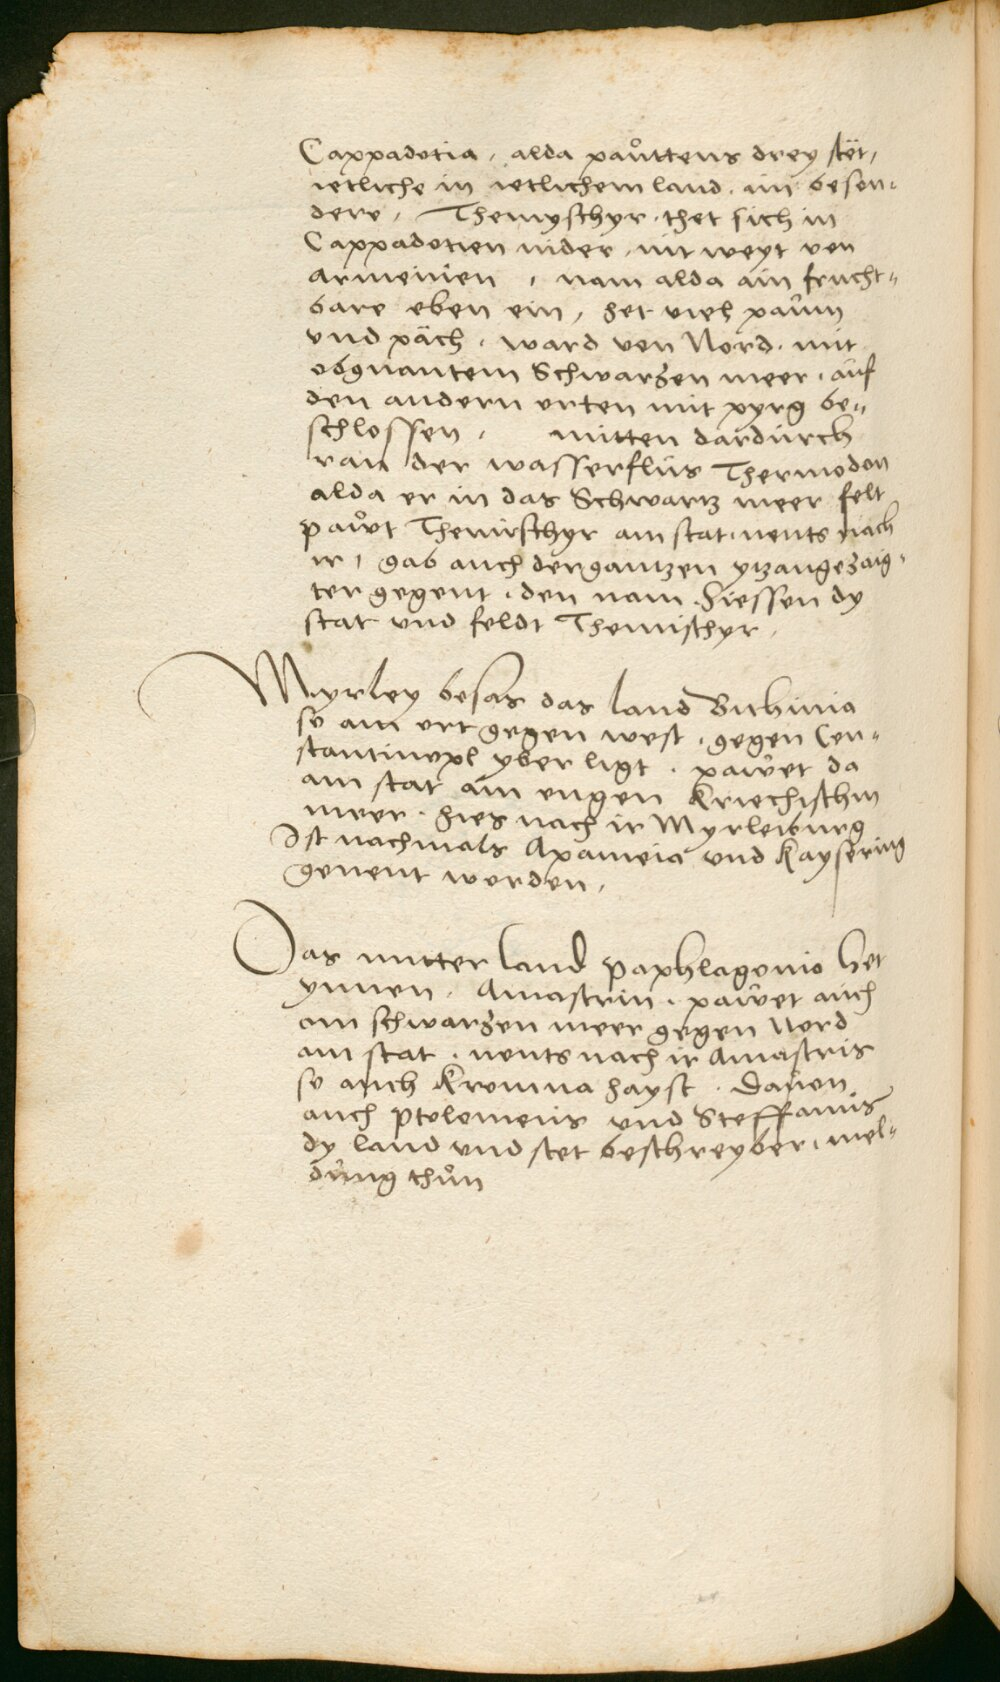 Cappadotia, alda paůttens drey stët,
ietliche in ietlichem land. im beson⸗
dere, Themyschyr. thet sich in
Cappadotien nider, nit weyt von
armenien, nam alda ain frucht⸗
bare eben ein, het viel paům
vnd päch. ward von Nord. mit
obgnantem Schwarzen meer. auf
den andern orten mit pyrg be⸗
schlossen, mitten dardurch
ran der wasserflus Thermodon
alda er in das Schwartz meer felt
pawt Themischyr am stat. nents nach
ir, gab auch der gantzen ytzangezaig⸗
ter gegent. den nam. hiessen dy
stat vnd feldt Themischyr,
Myrley besas das land Bithinia
so am ort gegen west. gegen Con⸗
stantinopl yber ligt. pawet da
am stat am engen Kriechischn
meer. hies nach ir Myrleiburg
Ist nachmals Apameia vnd Kaysering
genent worden,
Das mitter land Paphlagonio het
ynnen. Amastrin. pawet auch
am schwarzen meer gegen Nord
am stat. nents nach ir Amastris
so auch Kromna hayst. Dauon
auch Ptolemeus vnd Steffanus
dy land vnd stet beschreyber, mel⸗
dung thůn